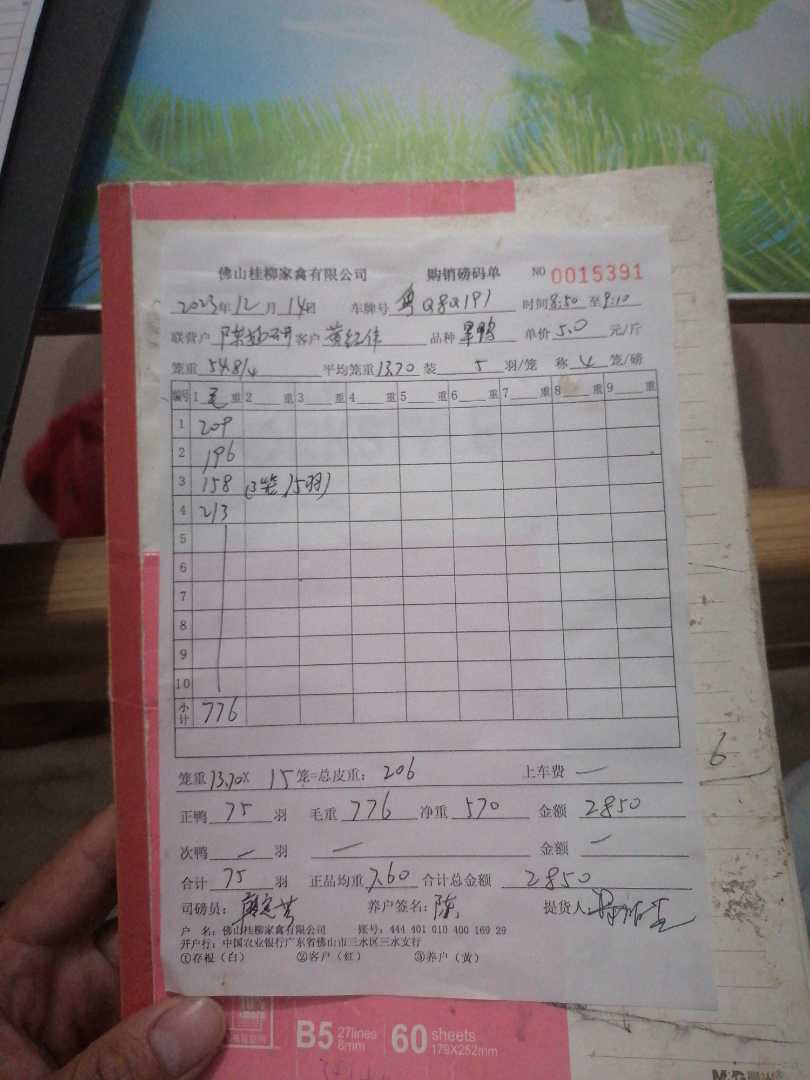 佛山桂柳家禽有限公司 购销磅码单 NO 0015391
2023年12月14日 车牌号 粤Q8Q191 时间8:50至9:10
联营户 客户 黄红伟 品种 单价5.0元/斤
笼重 54.8/4 平均笼重13.70 装 5 羽/笼 称 4 笼/磅
编号 1 毛 重 2 重 3 重 4 重 5 重 6 重 7 重 8 重 9 重
1 209
2 196
3 158 (3笼 15羽)
4 213
5
6
7
8
9
10
小计 776
笼重13.70X 15笼=总皮重: 206 上车费 —
正鸭 75 羽 毛重 776 净重 570 金额 2850
次鸭 — 羽 — 金额 —
合计 75 羽 正品均重 7.60 合计总金额 2850
司磅员: 养户签名: 陈 提货人
户 名: 佛山桂柳家禽有限公司 账号: 444 401 010 400 169 29
开户行: 中国农业银行广东省佛山市三水区三水支行
①存根(白) ②客户(红) ③养户(黄)
6
B5 27lines 8mm 60 sheets 179X252mm
M&G